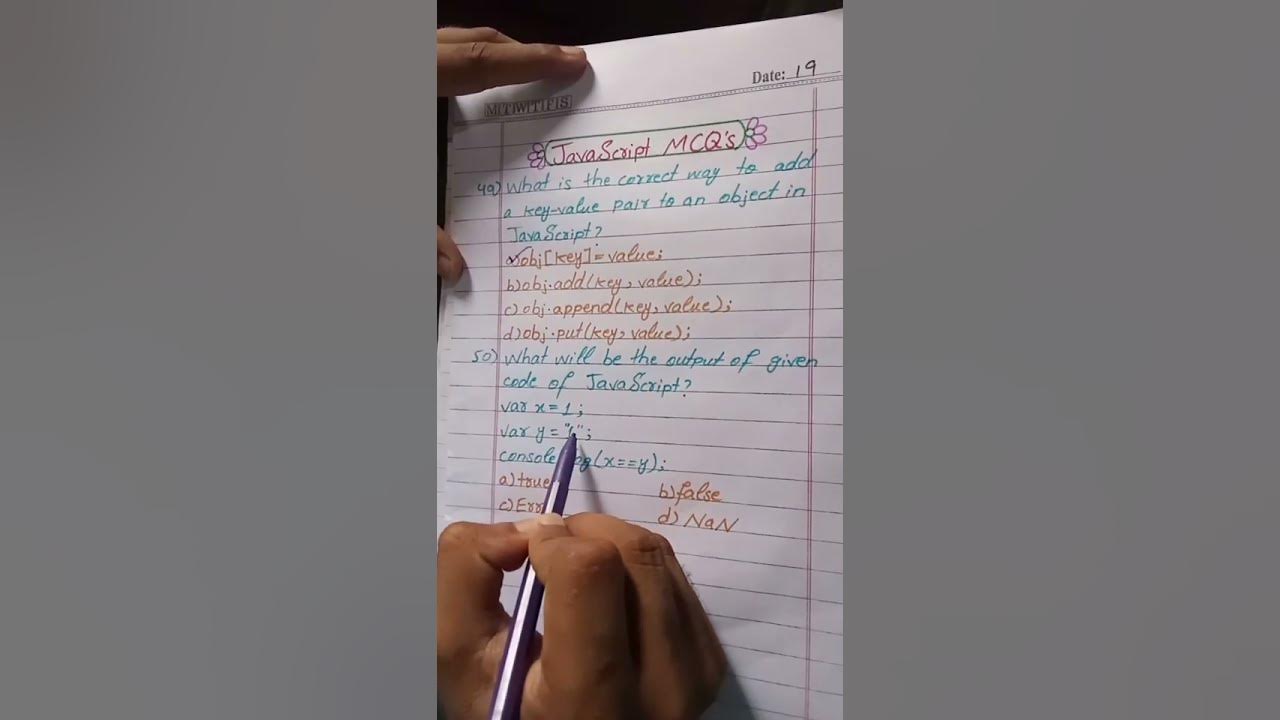 Date: 19
MTWTFS
JavaScript MCQ's
49) What is the correct way to add
a key-value pair to an object in
JavaScript?
a) obj[key]=value;
b) obj.add(key, value);
c) obj.append(key, value);
d) obj.put(key, value);
50) What will be the output of given
code of JavaScript?
var x=1;
var y="1";
(x==y);
a) true
b) false
c)
d) NaN